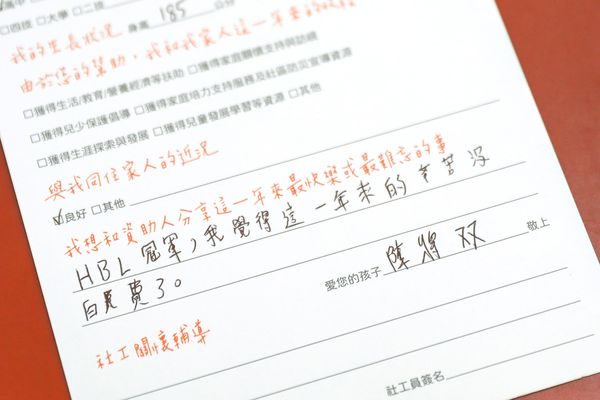 □四技 □大學 □二技 身高 185 公分
我的生長狀況
由於您的幫助,我和我家人這一年來的收穫
□獲得生活/教育/營養經濟等扶助 □獲得家庭關懷支持與訪視
□獲得兒少保護倡導 □獲得家庭培力支持服務及社區防災宣導資源
□獲得生涯探索與發展 □獲得兒童發展學習等資源 □其他
與我同住家人的近況
☑良好 □其他
我想和資助人分享這一年來最快樂或最難忘的事
HBL 冠軍,我覺得這一年來的辛苦沒
白費了。
愛您的孩子 陳將双 敬上
社工關懷輔導
社工員簽名